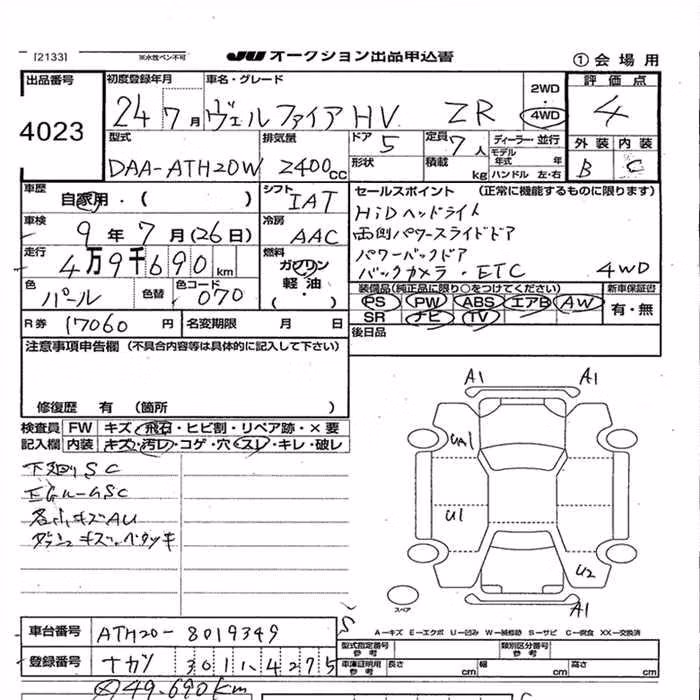 [2133] ※水性ペン不可 JU オークション出品申込書 ①会場用
出品番号 初度登録年月 車名・グレード 2WD・4WD 評価点
4023 24 7月 ヴェルファイアHV ZR 4
型式 排気量 ドア 定員 ディーラー・並行 外装 内装
DAA-ATH20W 2400cc 5 7人 モデル年式 年 B C
形状 積載 kg ハンドル 左・右
車歴 自家用・( ) シフト IAT セールスポイント (正常に機能するものに限ります)
車検 9年7月(26日) 冷房 AAC HiDヘッドライト
両側パワースライドドア
走行 4万9千690km 燃料 ガソリン 軽油・( ) パワーバックドア
バックカメラ・ETC 4WD
色 パール 色替 色コード 070 装備品(純正品に限り○をつけてください) 新車保証書
PS PW ABS エアB AW 有・無
SR ナビ TV
R券 17060円 名変期限 月 日 後日品
注意事項申告欄 (不具合内容等は具体的に記入して下さい)
修復歴 有 (箇所 )
検査員 FW キズ・飛石・ヒビ割・リペア跡・×要
記入欄 内装 キズ・汚レ・コゲ・穴・スレ・キレ・破レ
下廻りSC
EGルームSC
各小キズAU
A1 A1
UA1
U1
U2
A1
スペア
A—キズ E—エクボ U—凹み W—補修跡 S—サビ C—腐食 XX—交換済
車台番号 ATH20-8019349 型式指定番号 参考 類別区分番号 参考
登録番号 ナカソ 301 4275 車庫証明用 参考 長さ cm 幅 cm 高さ cm
49.690km